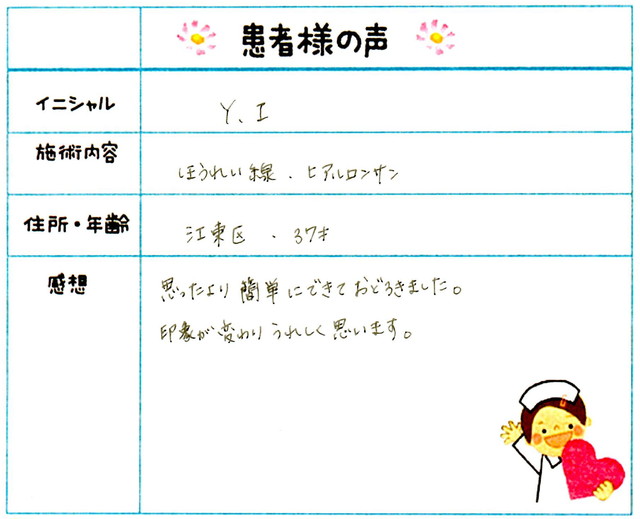 患者様の声
イニシャル
Y、I
施術内容
ほうれい線 . ヒアルロンサン
住所・年齢
江東区 . 37才
感想
思ったより簡単にできておどろきました。
印象が変わりうれしく思います。